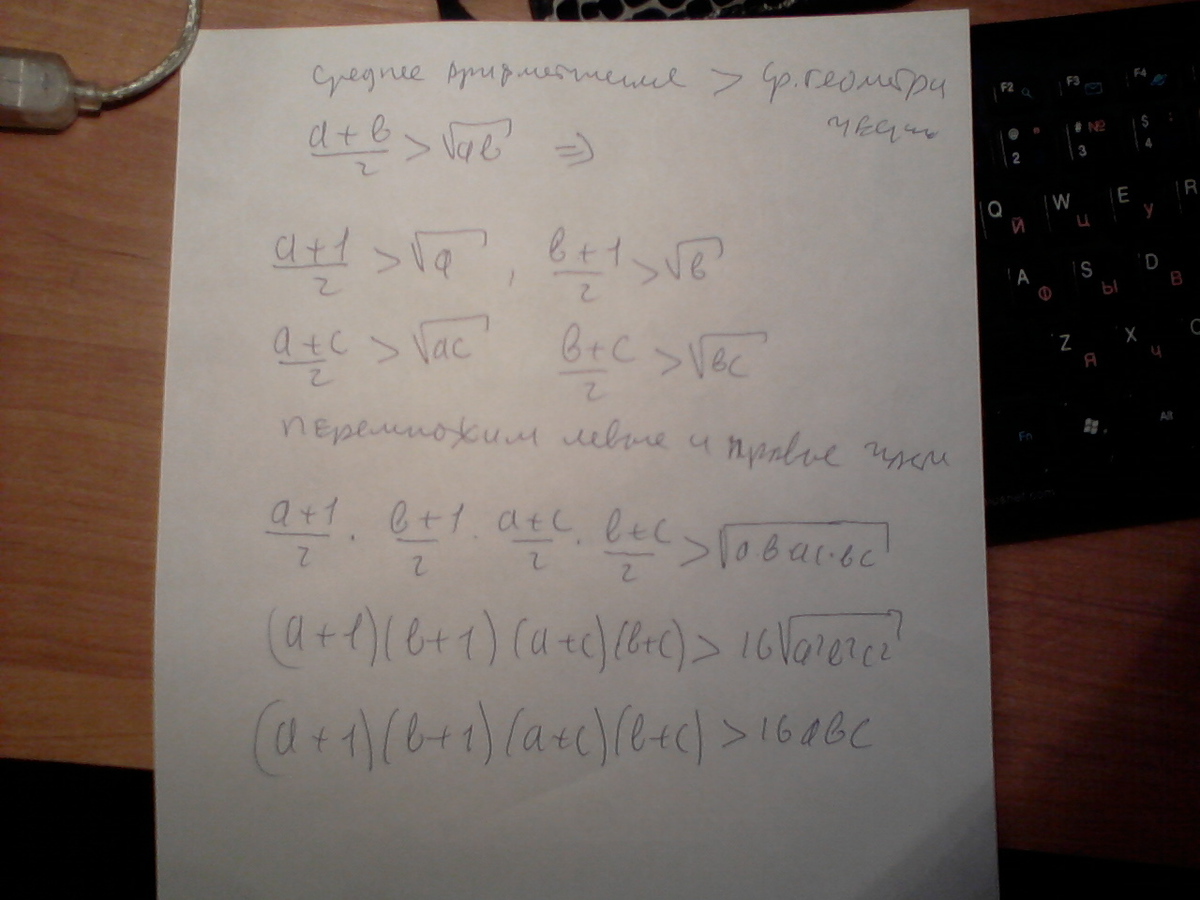 среднее арифметическое > ср. геометри
ческ
a+b/2 > √ab ⇒
a+1/2 > √a , b+1/2 > √b
a+c/2 > √ac b+c/2 > √bc
перемножим левые и правые части
a+1/2 · b+1/2 · a+c/2 · b+c/2 > √a·b·ac·bc
(a+1)(b+1)(a+c)(b+c) > 16√a²b²c²
(a+1)(b+1)(a+c)(b+c) > 16abc
F2 F3 F4
@ " 2 # № 3 $ ; 4
Q Й W Ц E У R
A Ф S Ы D В
Z Я X Ч C
Fn Alt